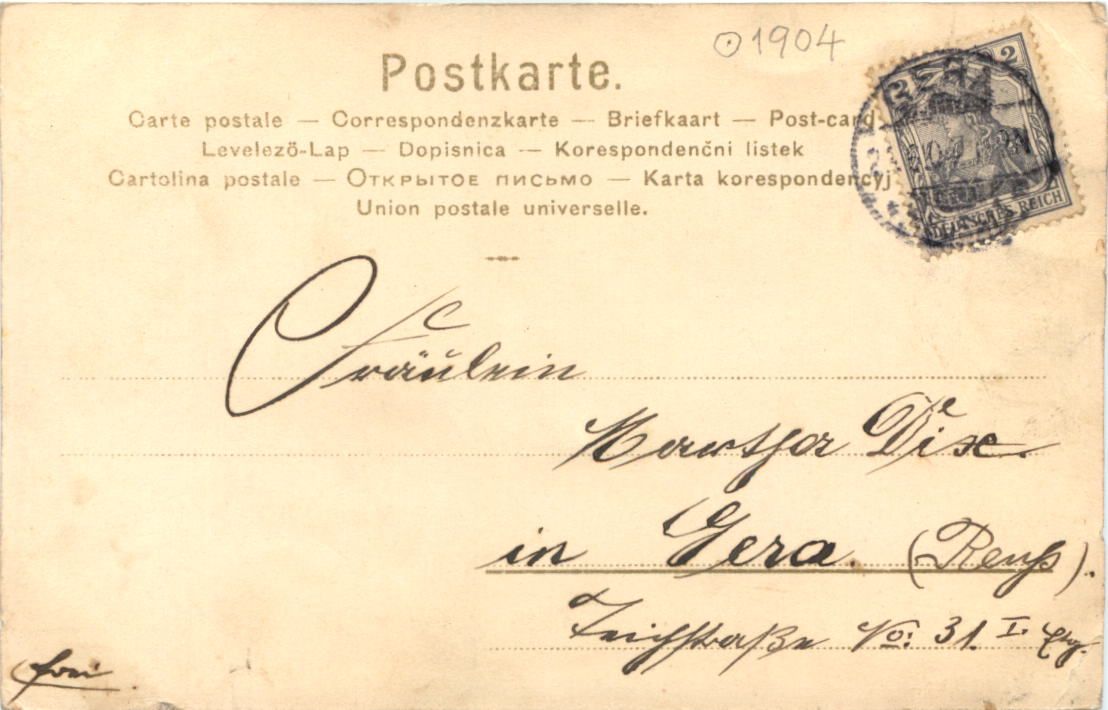 ⊙1904
Postkarte.
Carte postale — Correspondenzkarte — Briefkaart — Post-card
Levelező-Lap — Dopisnica — Korespondenčni listek
Cartolina postale — Открытое письмо — Karta korespondencyj
Union postale universelle.
2 2
DEUTSCHES REICH
Fräulein
Martha Dix.
in Gera. (Reuß).
Teichstraße No: 31. I. Etg.
frei